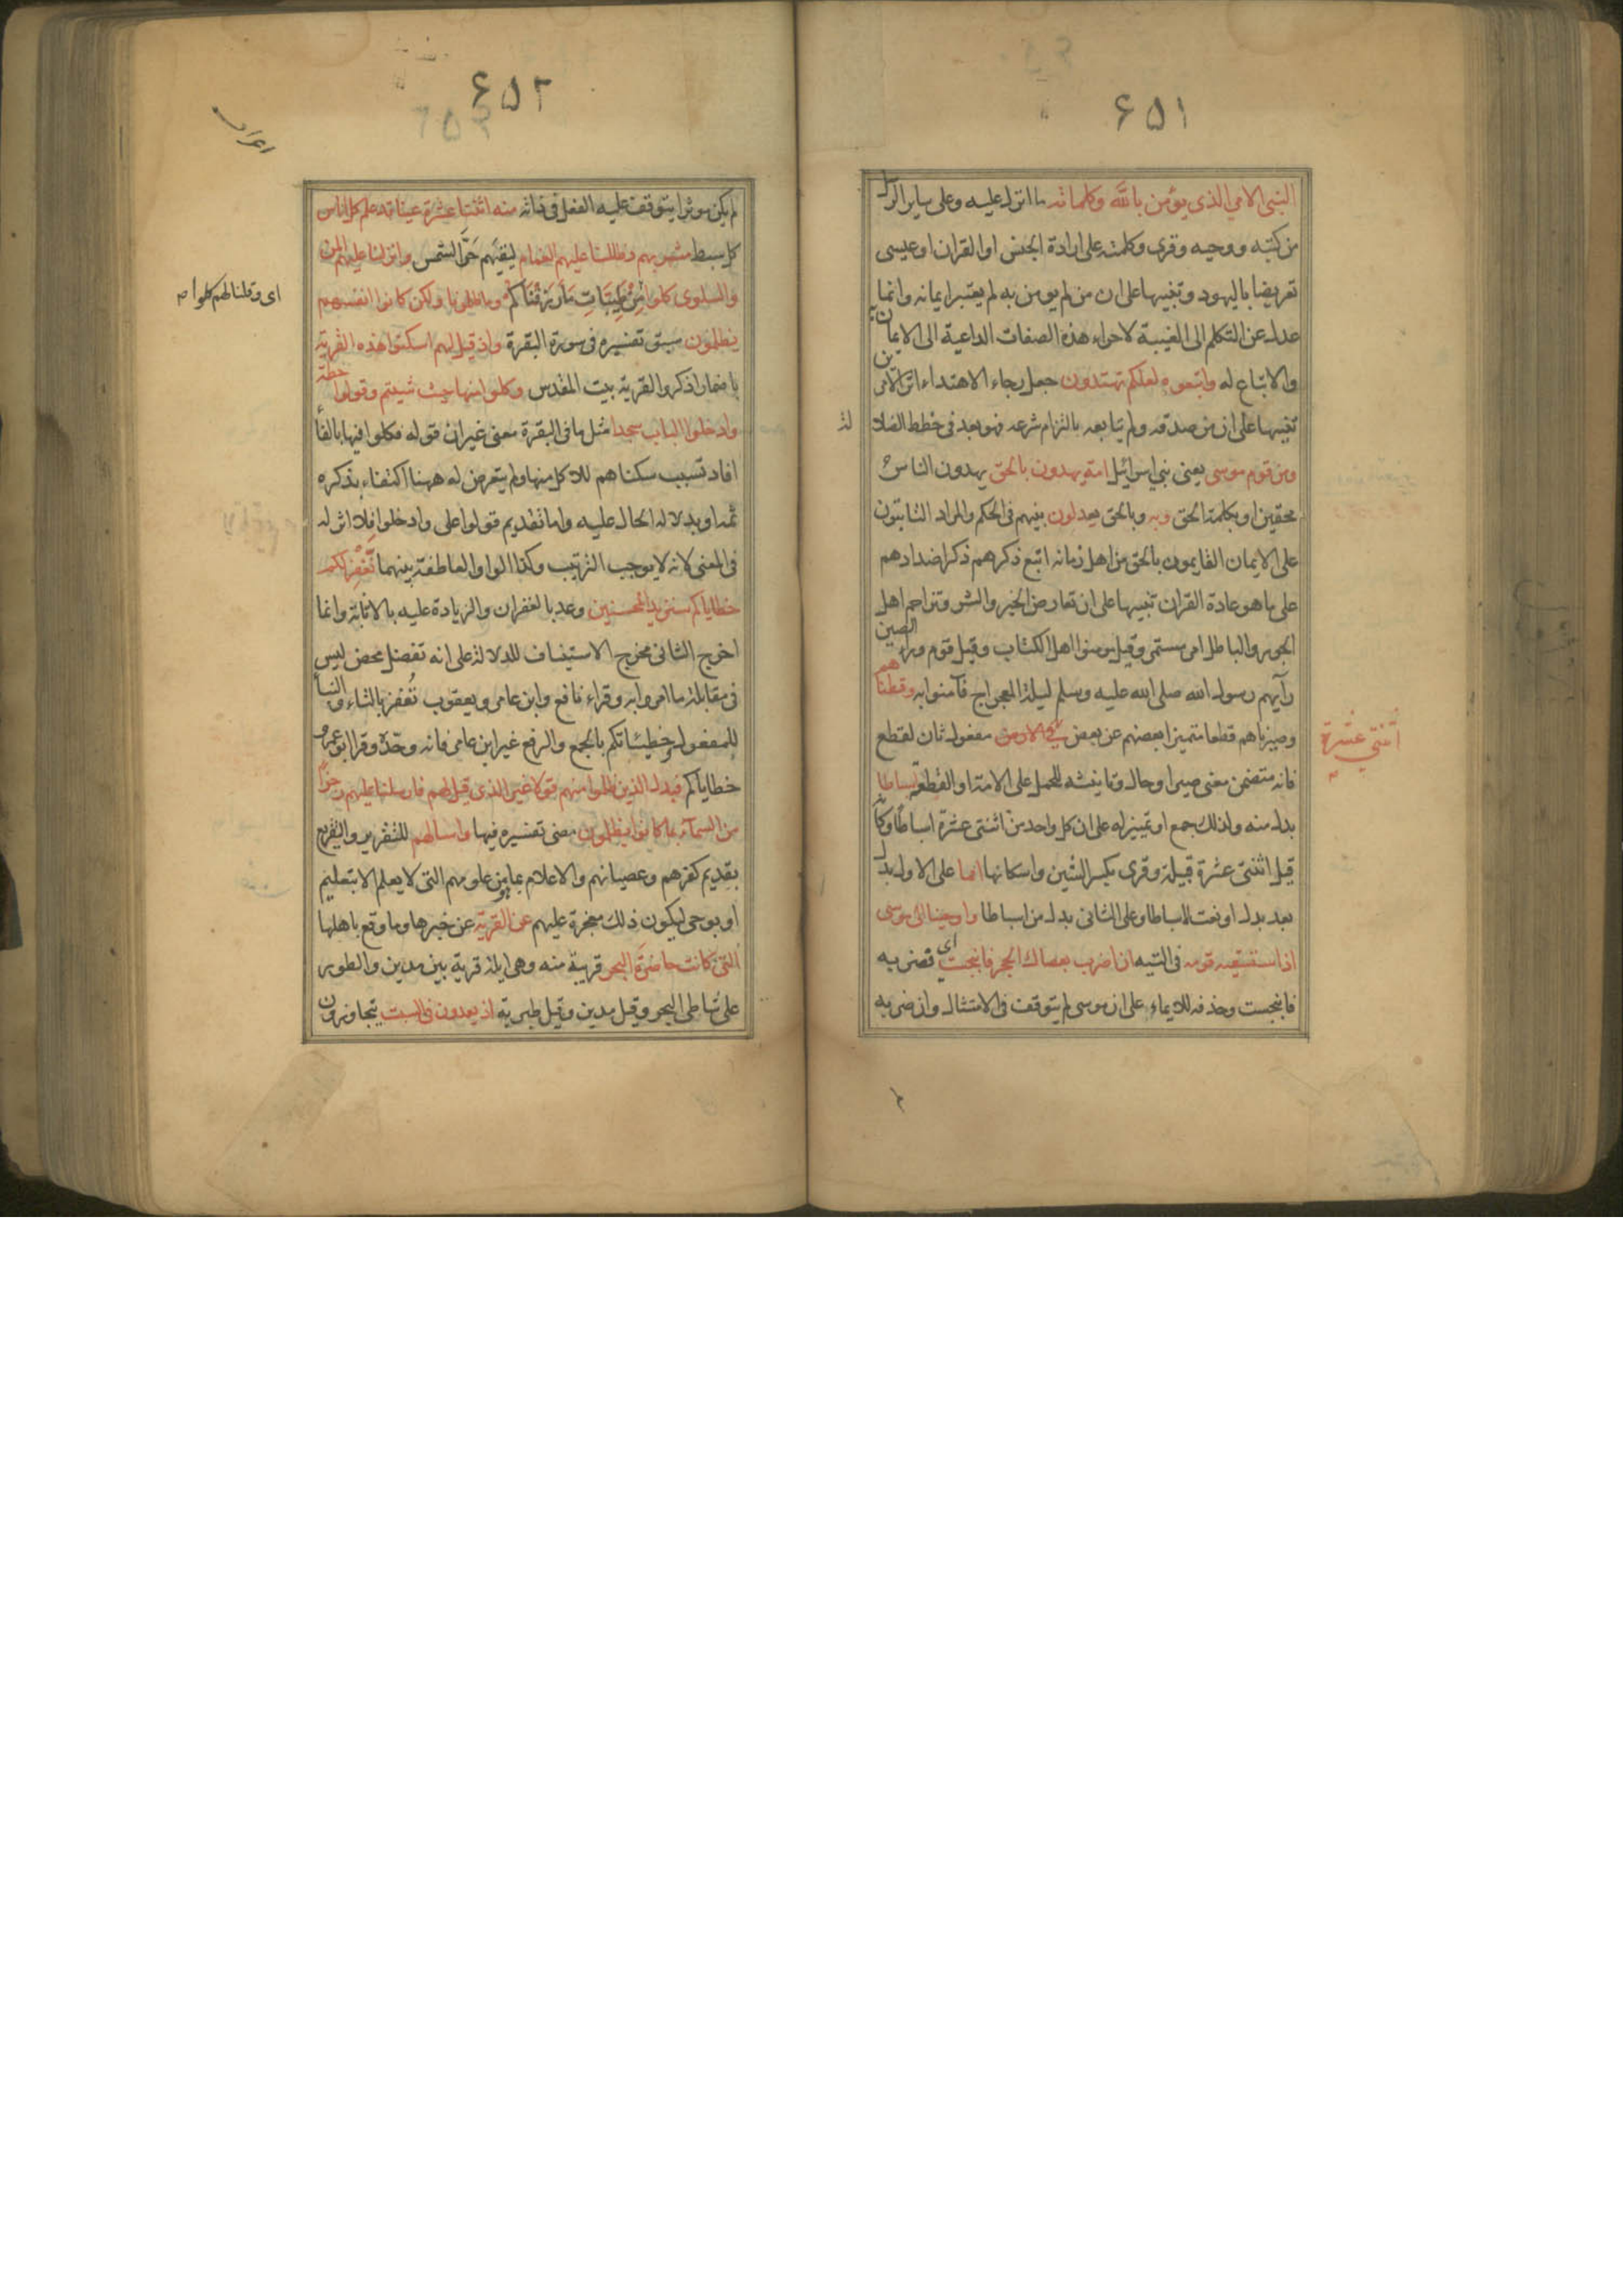 ۶۵۱
النبي الامي الذى يؤمن بالله وكلماته ما انزل عليه وعلى ساير الرسل
من كتبه ووحيه وقرى وكلمته على ارادة الجنس او القران او عيسى
تعريضا باليهود وتنبيها على ان من لم يومن به لم يعتبر ايمانه وانما
عدل عن التكلم الى الغيبة لاجراء هذه الصفات الداعية الى الايمان به
والاتباع له واتبعوه لعلكم تهتدون جعل رجاء الاهتداء اثر الامرين
تنبيها على ان من صدقه ولم يتابعه بالتزام شرعه فهو بعد فى خطط الضلا
لة
ومن قوم موسى يعنى بنى اسرائيل امة يهدون بالحق يهدون الناس
محقين او بكلمة الحق وبه وبالحق يعدلون بينهم فى الحكم والمراد الثابتون
على الايمان القايمون بالحق من اهل زمانه اتبع ذكرهم ذكر اضدادهم
على ما هو عادة القران تنبيها على ان تعارض الخير والشر وتزاحم اهل
الحق والباطل امر مستمر وقيل مومنوا اهل الكتاب وقيل قوم وراء الصين
رآيهم رسول الله صلى الله عليه وسلم ليلة المعراج فآمنوا به وقطعناهم
وصيرناهم قطعا متميزا بعضهم عن بعض فى الارض مفعول ثان لقطع
اثنتي عشرة
فانه متضمن معنى صير او حال وتانيثه للحمل على الامة او القطعة اسباطا
بدل منه ولذلك جمع او تمييز له على ان كل واحد من اثنتى عشرة اسباط وكانه
قيل اثنتى عشرة قبيلة وقرى بكسر الشين واسكانها امما على الاول بدل
بعد بدل او نعت لاسباطا وعلى الثانى بدل من اسباطا واوحينا الى موسى
اذ استسقيه قومه فى التيه ان اضرب بعصاك الحجر فانبجست اى فضربه
فانبجست وحذفه للايماء على ان موسى لم يتوقف فى الامتثال وان ضربه
۶۵۲
لم يكن موثرا يتوقف عليه الفعل فى ذاته منه اثنتا عشرة عينا قد علم كل اناس
كل سبط مشربهم وظللنا عليهم الغمام ليقيهم حر الشمس وانزلنا عليهم المن
والسلوى كلوا من طيبات ما رزقناكم وما ظلمونا ولكن كانوا انفسهم
اى وقلنا لهم كلوا
يظلمون سبق تفسيره فى سورة البقرة واذ قيل لهم اسكنوا هذه القرية
باضمار اذكر والقرية بيت المقدس وكلوا منها حيث شيتم وقولوا حطة
وادخلوا الباب سجدا مثل ما فى البقرة معنى غير ان قوله فكلوا فيها بالفا
افاد تسبب سكناهم للاكل منها ولم يتعرض له ههنا اكتفاء بذكره
ثمه او بدلالة الحال عليه واما تقديم قولوا على وادخلوا فلا اثر له
فى المعنى لانه لا يوجب الترتيب وكذا الواو العاطفة بينهما نغفر لكم
خطاياكم سنزيد المحسنين وعد بالغفران والزيادة عليه بالاثابة وانما
اخرج الثانى مخرج الاستيناف للدلالة على انه تفضل محض ليس
فى مقابلة ما امروا به وقراء نافع وابن عامر ويعقوب تغفر بالتاء والبنا
للمفعول وخطيئاتكم بالجمع والرفع غير ابن عامر فانه وحد وقرا ابو عمرو
خطاياكم فبدل الذين ظلموا منهم قولا غير الذى قيل لهم فارسلنا عليهم رجزا
من السمآء بما كانوا يظلمون مضى تفسيره فيها واسالهم للتقرير والتقريع
بقديم كفرهم وعصيانهم والاعلام بما هو من علومهم التى لا يعلم الا بتعليم
او بوحى ليكون ذلك معجزة عليهم عن القرية عن خبرها وما وقع باهلها
التى كانت حاضرة البحر قريبة منه وهى ايلة قرية بين مدين والطور
على شاطى البحر وقيل مدين وقيل طبرية اذ يعدون فى السبت يتجاوزون